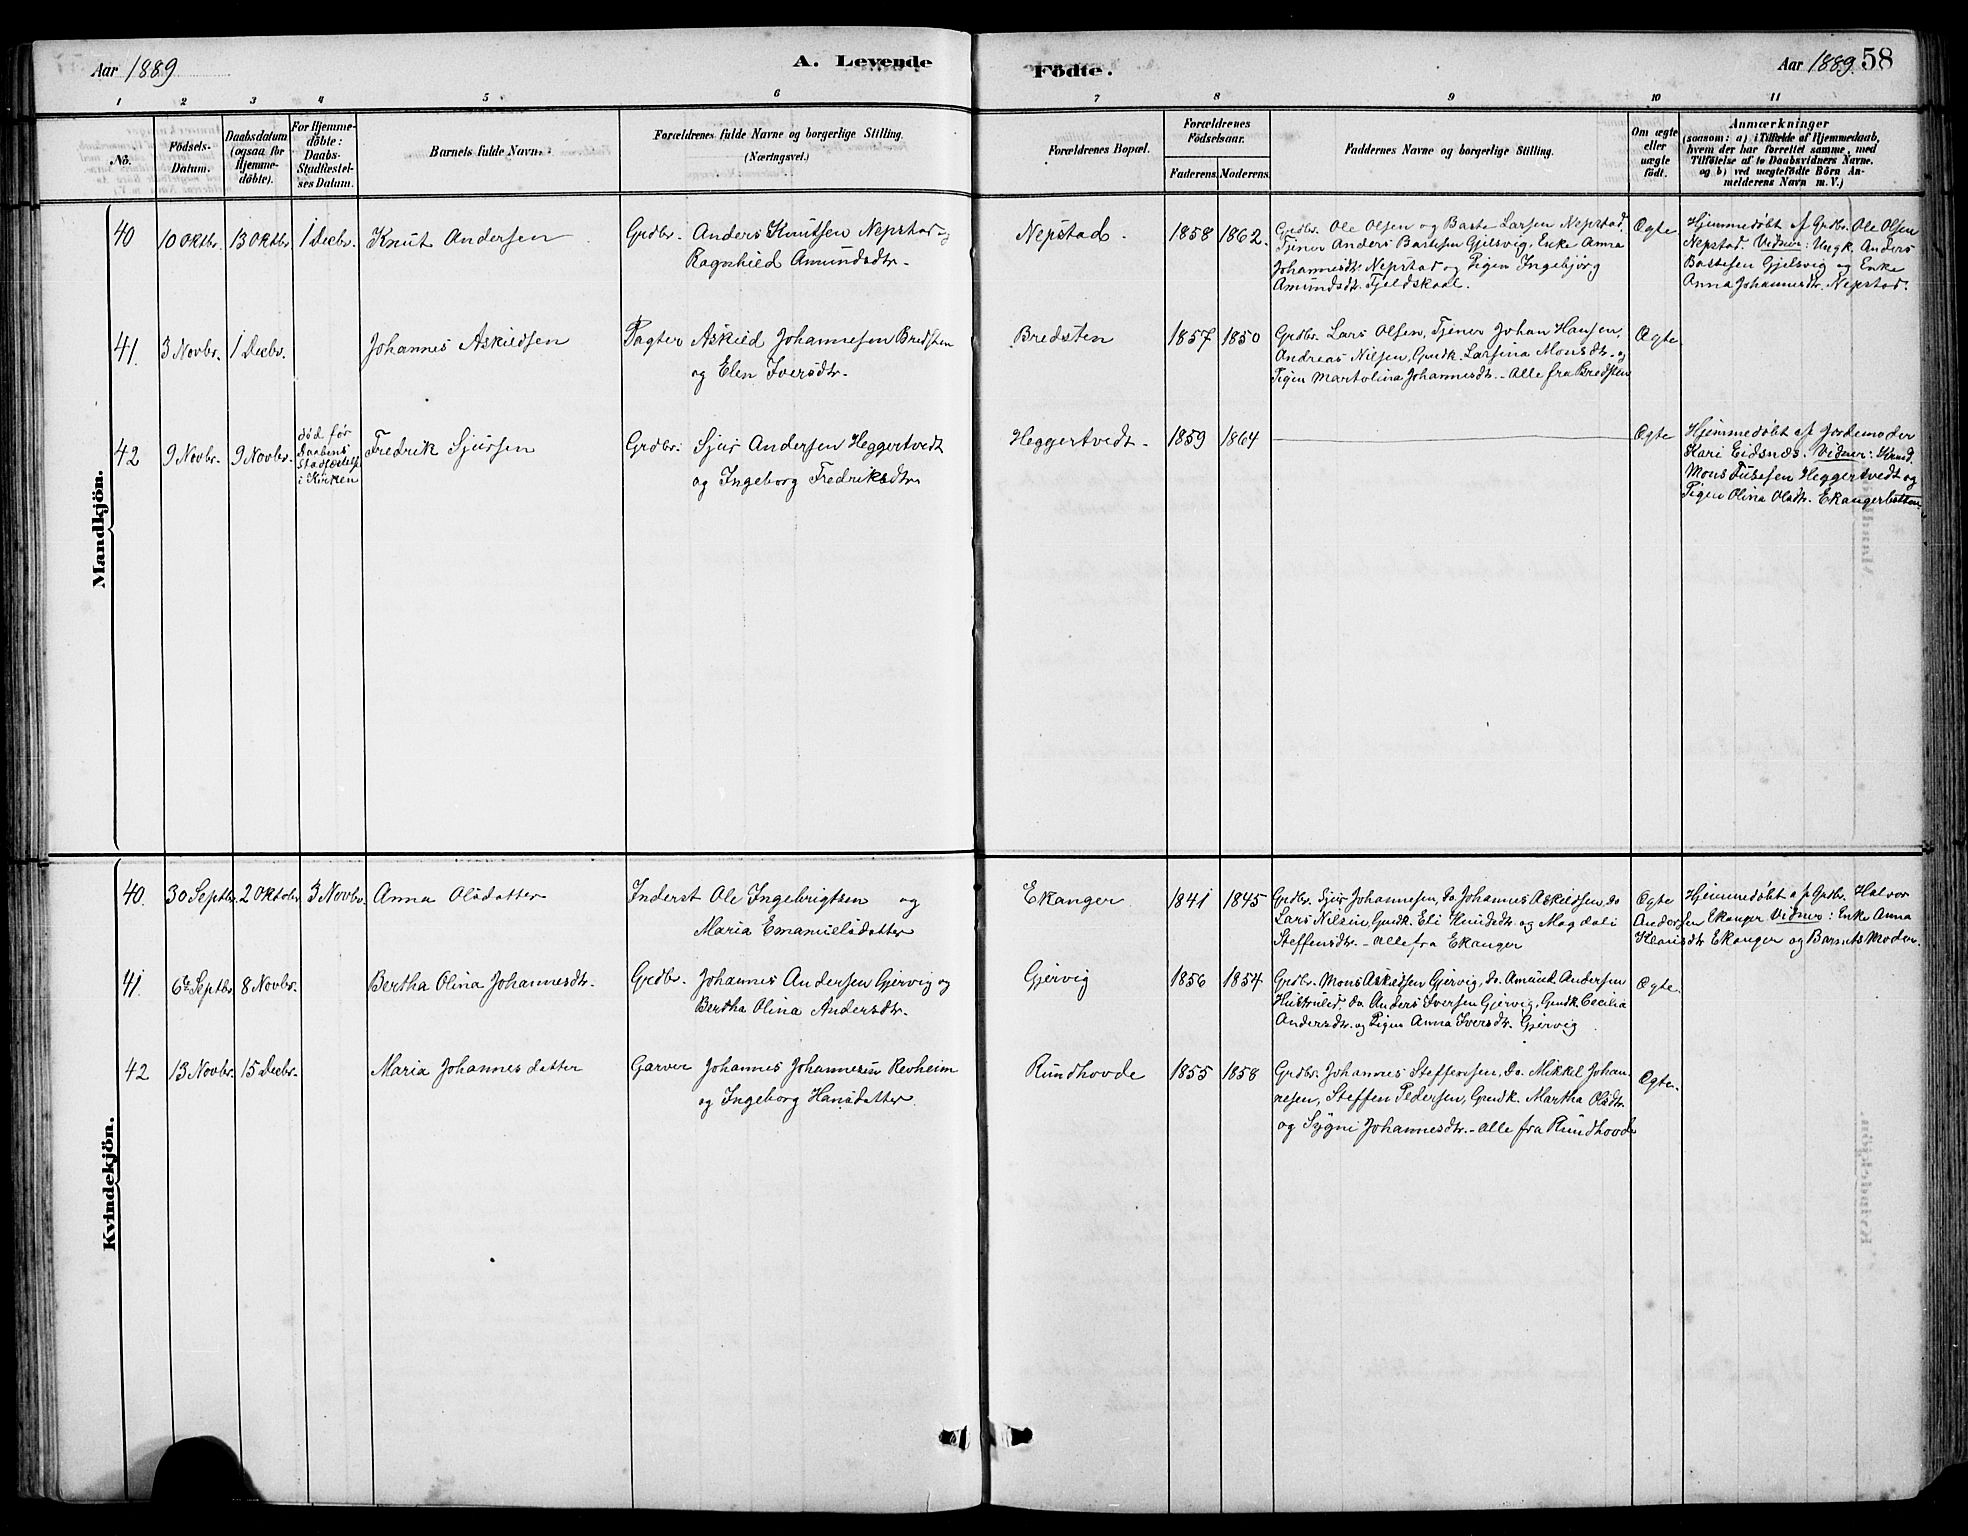 Aar 1889
A. Levende
Födte.
Aar 1889. 58
1 2 3 4 5 6 7 8 9 10 11
No.
Födsels-
Datum.
Daabsdatum
(ogsaa for
Hjemme-
döbte).
For Hjemme-
döbte:
Daabs-
Stadfæstel-
ses Datum.
Barnets fulde Navn.
Forældrenes fulde Navne og borgerlige Stilling.
(Næringsvei.)
Forældrenes Bopæl.
Forældrenes
Födselsaar.
Faderens. Moderens.
Faddernes Navne og borgerlige Stilling.
Om ægte
eller
uægte
födt.
Anmærkninger
(saasom: a) i Tilfælde af Hjemmedaab,
hvem der har forrettet samme, med
Tilföielse af to Daabsvidners Navne.
og b) ved uægtefödte Börn An-
melderens Navn m. V.)
Mandkjön.
40 10 Oktbr. 13 Oktbr 1 Decbr. Knut Andersen
Grdbr. Anders Knutsen Nepstad og
Ragnhild Amundsdtr.
Nepstad. 1858 1862.
Grdbr. Ole Olsen og Baste Larsen Nepstad,
Tjener Anders Bastesen Gjelsvig, Enke Anna
Johannesdtr. Nepstad og Pigen Ingebjørg
Amundsdtr. Fjeldskaal.
Ægte
Hjemmedøbt af Grdbr. Ole Olsen
Nepstad. Vidner: Ungk. Anders
Bastesen Gjelsvig og Enke
Anna Johannesdtr. Nepstad.
41. 3 Novbr. 1 Decbr. Johannes Askildsen
Pagter Askild Johannesen Bredsten
og Elen Iversdtr.
Bredsten 1857 1850
Grdbr. Lars Olsen, Tjener Johan Hansen,
Andreas Nilsen, Gmdk. Larsina Monsdtr. og
Pigen Martolina Johannesdtr. - Alle fra Bredsten
Ægte
42 9 Novbr. 9 Novbr.
død før
Daabens
Stadfæstelse
i Kirken
Fredrik Sjursen
Grdbr. Sjur Andersen Heggertvedt
og Ingeborg Fredriksdtr.
Heggertvedt. 1859 1864
Ægte
Hjemmedøbt af Jordemoder
Kari Eidsnes. Vidner:
Mons Heggertvedt og
Pigen Olina Olsdtr. Ekangerbotten.
Kvindekjön.
40. 30 Septbr 2 Oktober 3 Novbr. Anna Olsdatter
Inderst Ole Ingebrigtsen og
Maria Emanuelsdatter
Ekanger 1841 1845
Grdbr. Sjur Johannesen, do Johannes Askildsen, do
Lars Nilsen, Gmdk. Eli Knudsdtr. og Magdali
Steffensdtr. - Alle fra Ekanger
Ægte
Hjemmedøbt af Grdbr. Halvor
Andersen Ekanger Vidner: Enke Anna
Ekanger og Barnets Moder.
41. 6te Septbr. 8 Novbr. Bertha Olina Johannesdtr.
Grdbr. Johannes Andersen Gjervig og
Bertha Olina Andersdtr.
Gjervig 1856 1854
Grdbr. Mons Askildsen Gjervig, do. Amund Andersen
do Anders Iversen Gjervig, Gmdk. Cecilia
Andersdtr. og Pigen Anna Iversdtr. Gjervig
Ægte.
42 13 Novbr. 15 Decbr. Maria Johannesdatter
Garver Johannes Johannesen Revheim
og Ingeborg Hansdatter
Rundhovde 1855 1858
Grdbr. Johannes Steffensen, do. Mikkel Johan-
nesen, Steffen Pedersen, Gmdk. Martha Olsdtr.
og Sygni Johannesdtr. - Alle fra Rundhovde
Ægte.